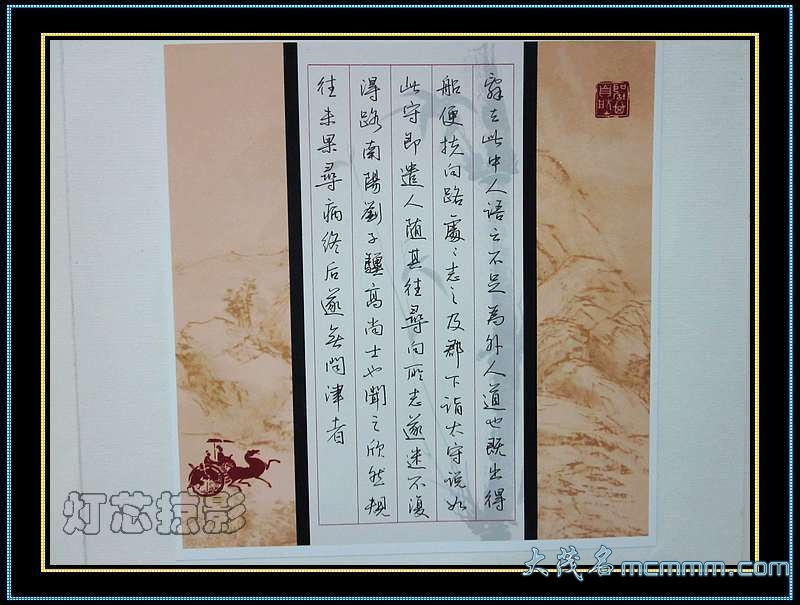 辞去此中人语云不足為外人道也既出得
船便扶向路處々志之及郡下詣太守说如
此守即遣人随其往尋向所志遂迷不復
得路南陽劉子驥高尚士也聞之欣然規
往未果尋病终后遂無問津者
灯芯掠影
大茂名mcmmm.com